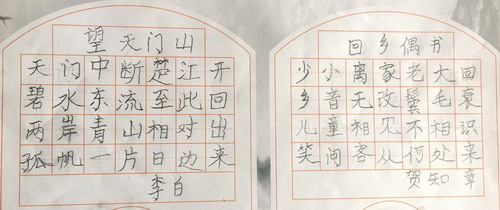 望天门山
天门中断楚江开
碧水东流至此回
两岸青山相对出
孤帆一片日边来
李白
回乡偶书
少小离家老大回
乡音无改鬓毛衰
儿童相见不相识
笑问客从何处来
贺知章